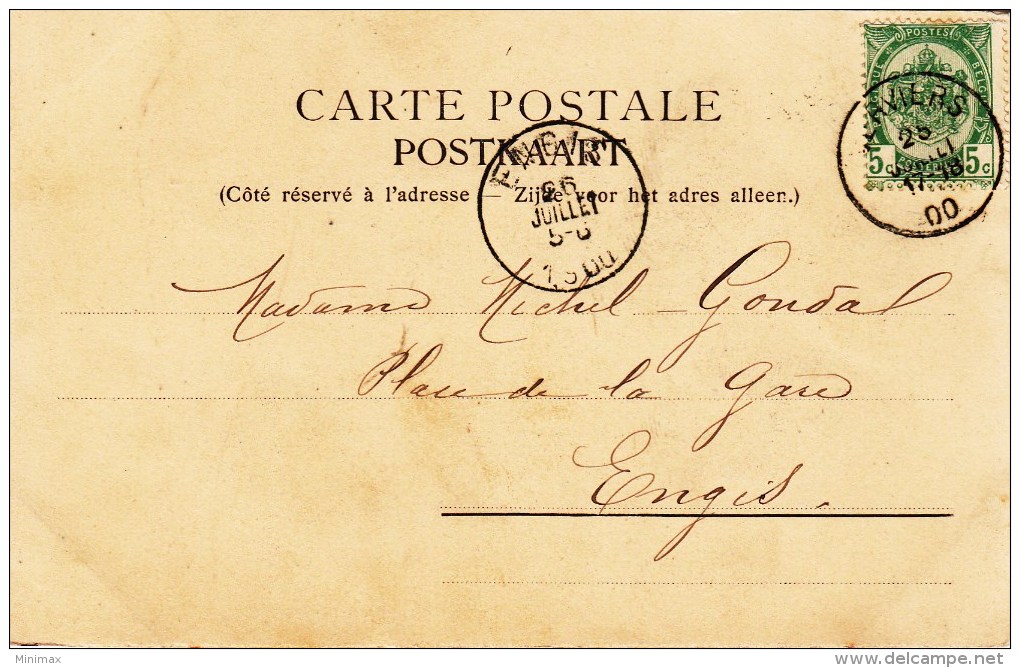 POSTES
CARTE POSTALE
POSTKAART
(Côté réservé à l'adresse — Zijde voor het adres alleen.)
ENGIS
26
JUILLET
5-6
1900
VERVIERS
25
JUILLET
17-18
00
5c 5c
Madame Michel-Gondal
Place de la Gare
Engis.
Minimax
www.delcampe.net